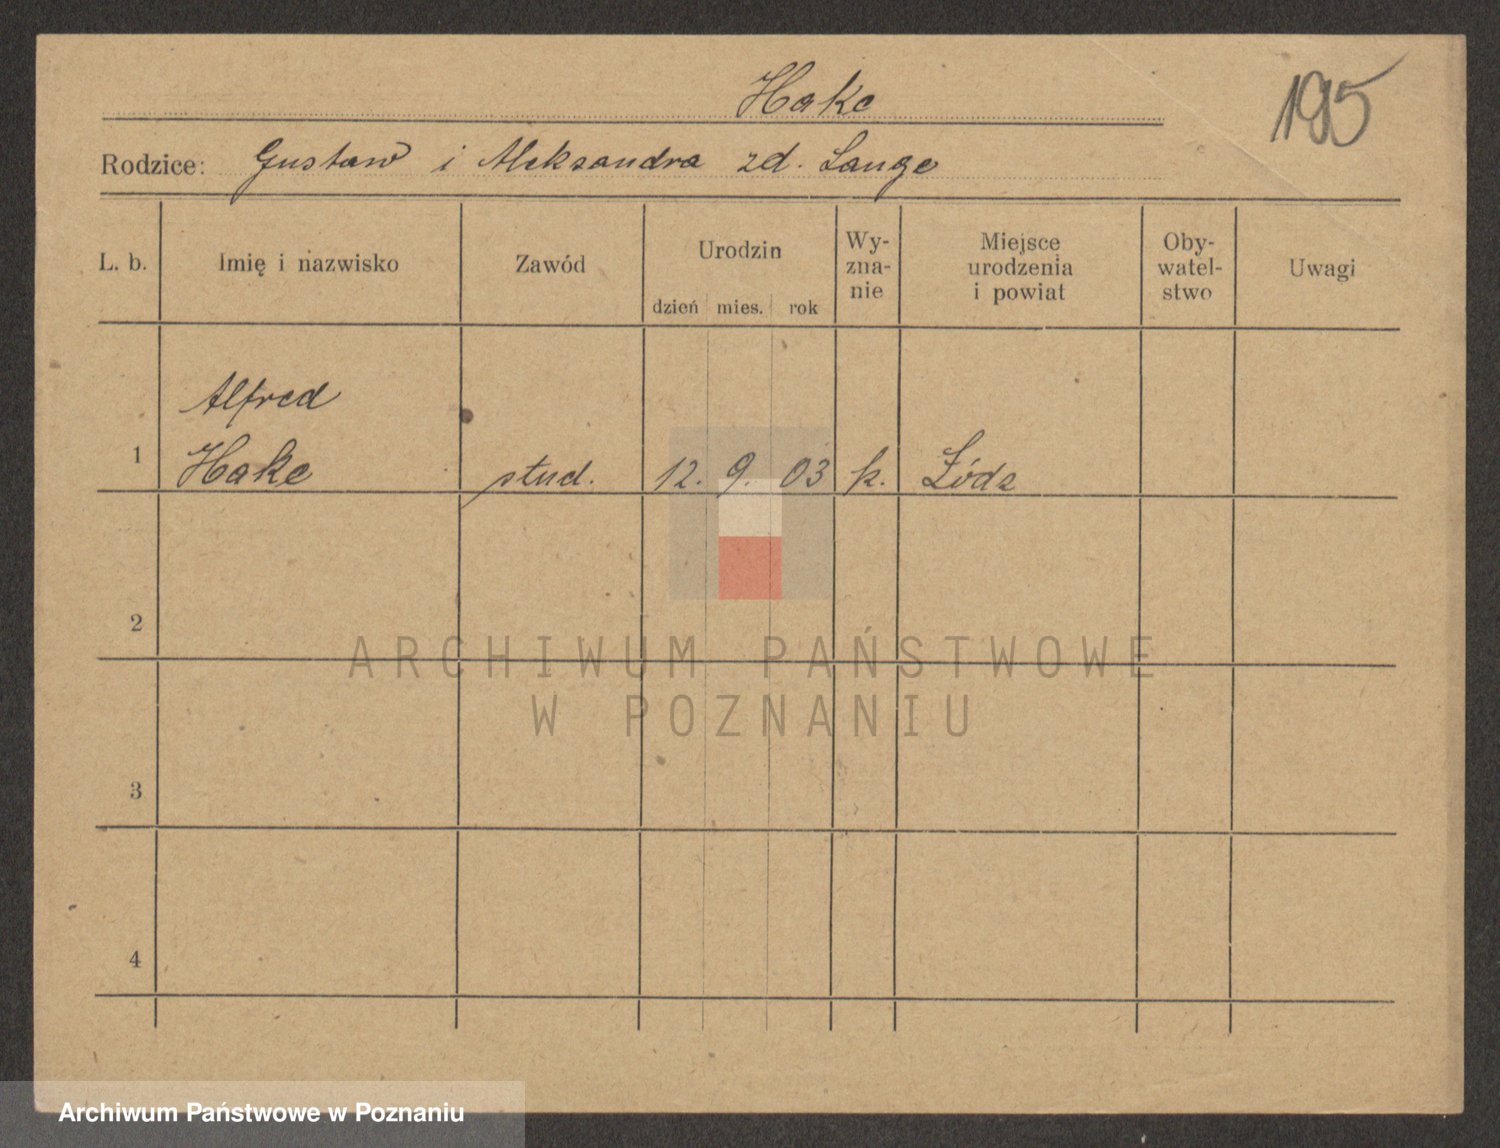 Hake
195
Rodzice: Gustaw i Aleksandra zd. Lange
L. b.
Imię i nazwisko
Zawód
Urodzin
dzień mies. rok
Wy-
zna-
nie
Miejsce
urodzenia
i powiat
Oby-
watel-
stwo
Uwagi
Alfred
1 Hake stud. 12. 9. 03 k. Łódz
2
ARCHIWUM PAŃSTWOWE
W POZNANIU
3
4
Archiwum Państwowe w Poznaniu